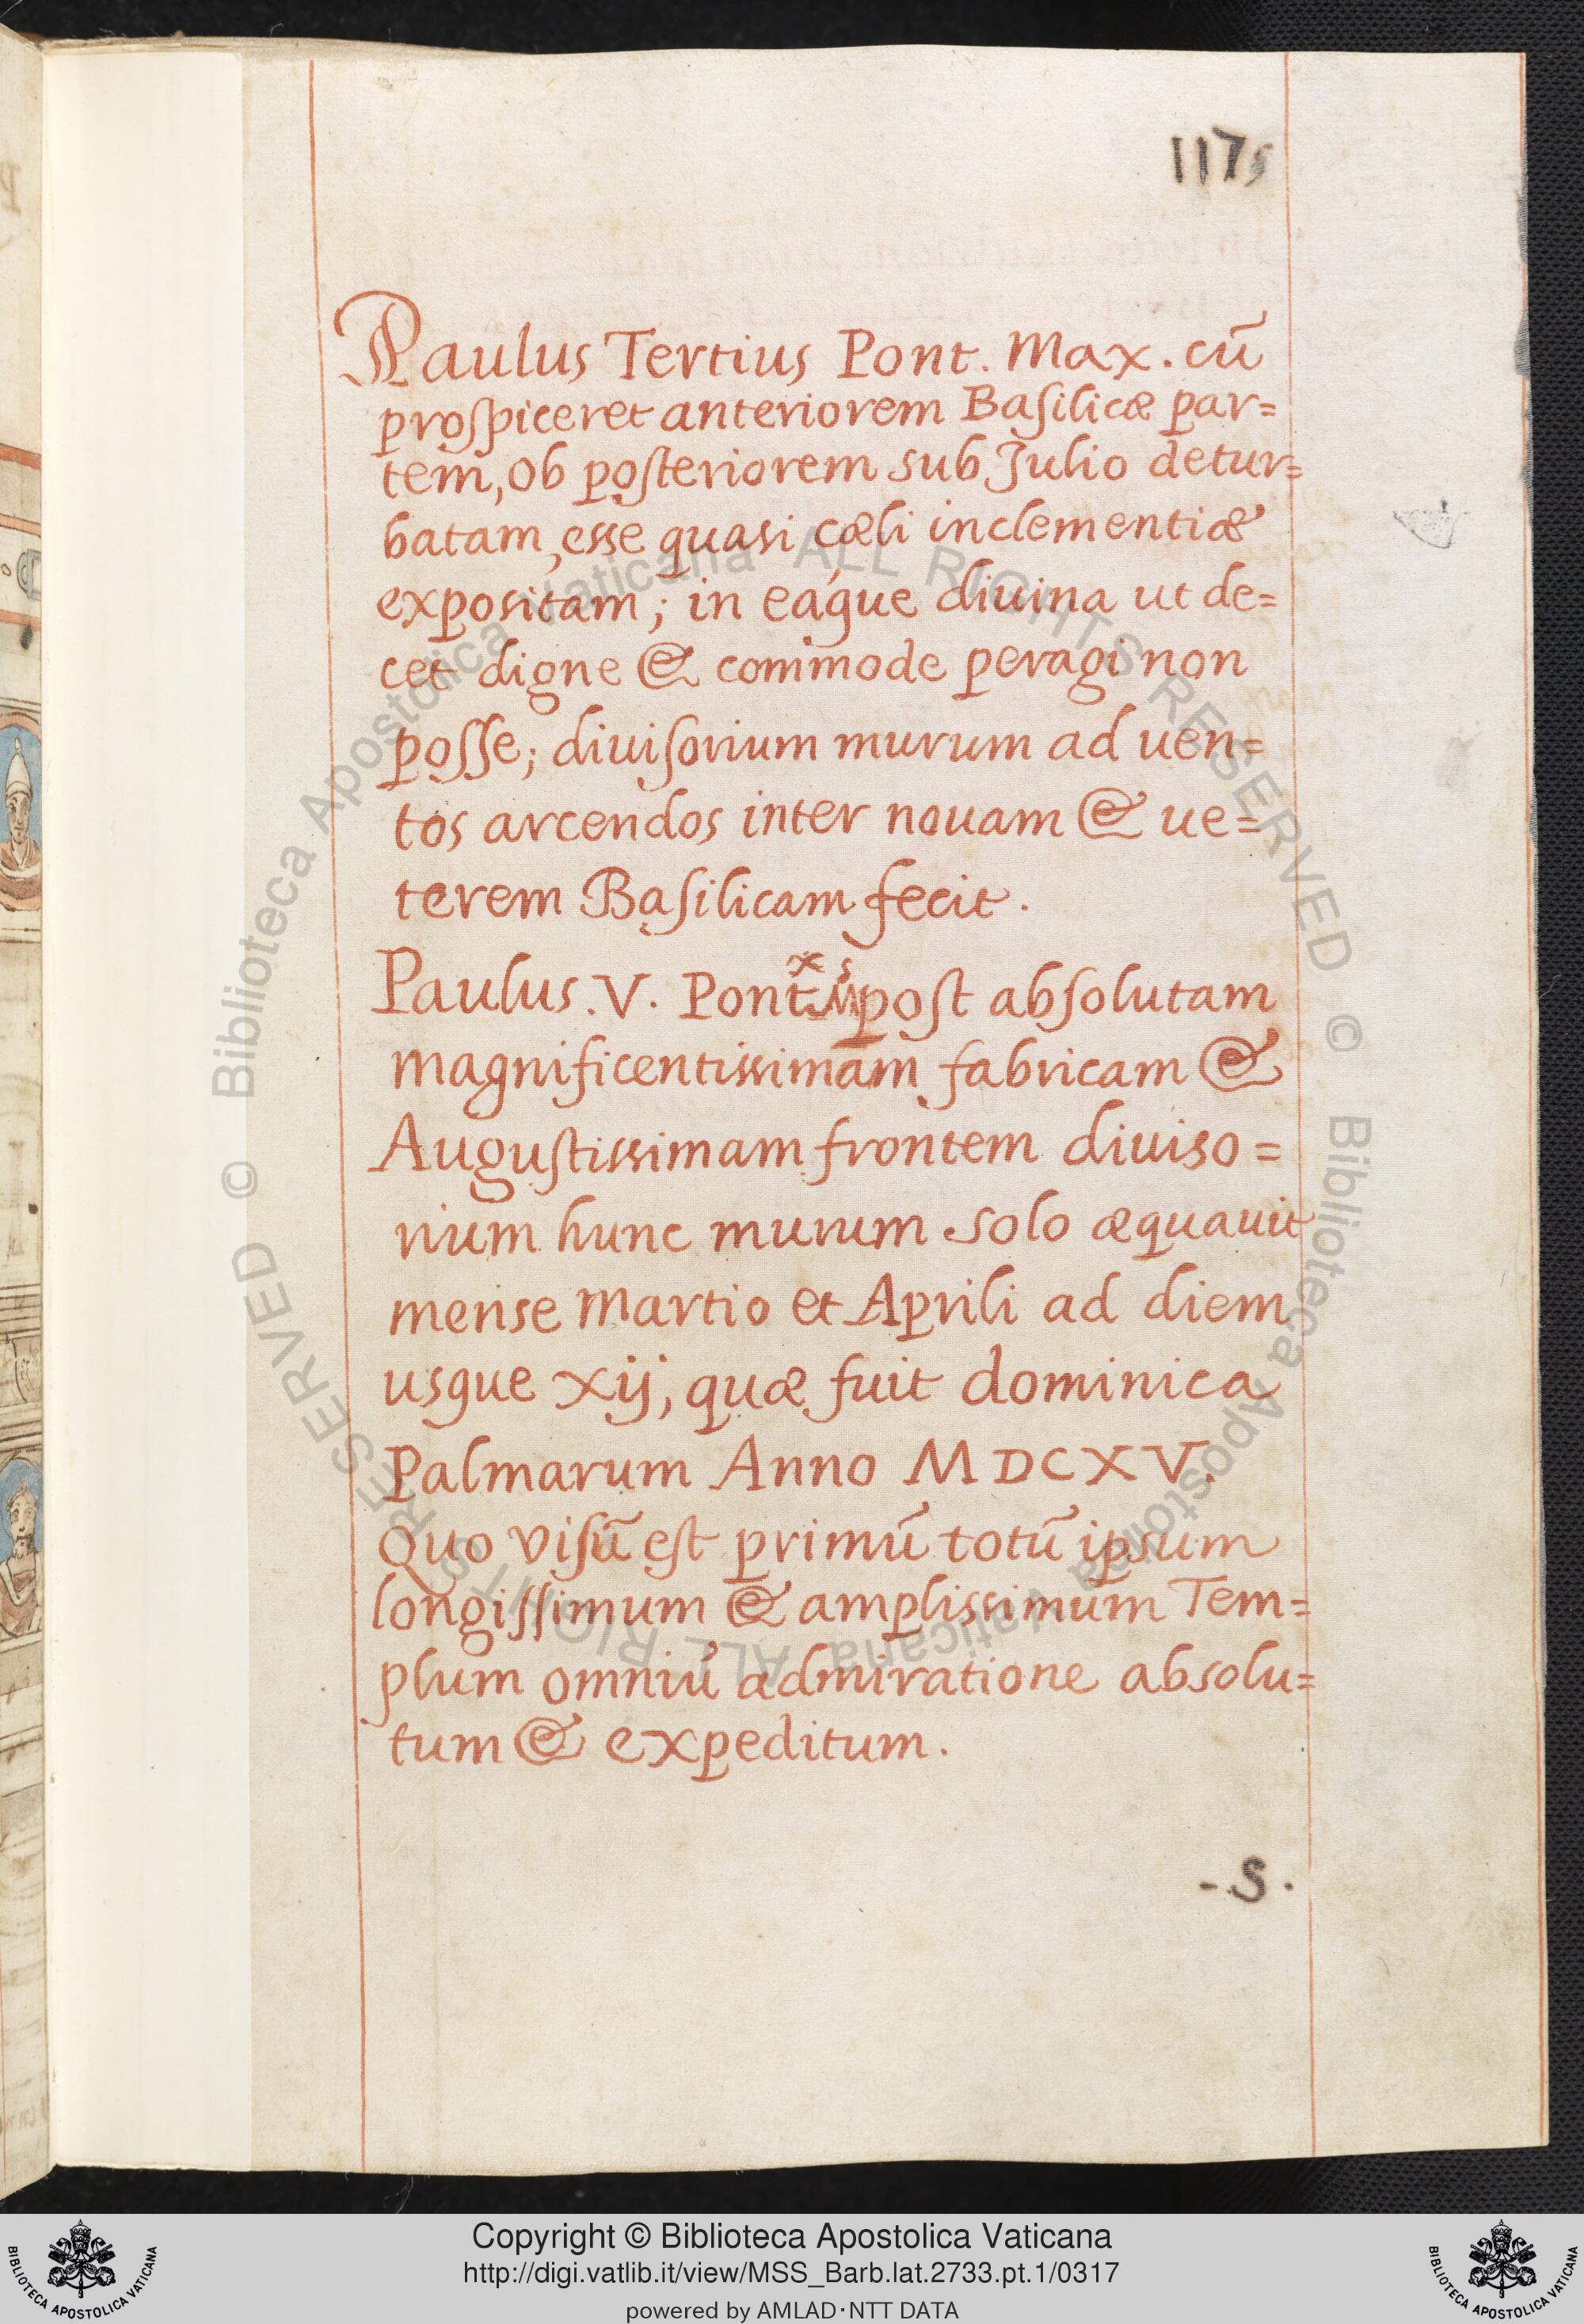 1175
Paulus Tertius Pont. Max. cū
proſpiceret anteriorem Baſilicæ par=
tem, ob poſteriorem sub Julio detur=
batam, esse quasi cæli inclementiæ
expositam; in eáque diuina ut de=
cet digne & commode peragi non
poſſe; diuiſorium murum ad uen=
tos arcendos inter nouam & ue=
terem Baſilicam fecit.
Paulus. V. Pont. post abſolutam
magnificentissimam fabricam &
Auguſtissimam frontem diuiso=
rium hunc murum solo æquauit
mense Martio et Aprili ad diem
usque xij, quæ fuit dominica
Palmarum Anno MDCXV.
Quo viſū eſt primū totū ipsum
longiſſimum & amplissimum Tem=
plum omniū admiratione absolu=
tum & expeditum.
-S.
© Biblioteca Apostolica Vaticana ALL RIGHTS RESERVED © Biblioteca Apostolica Vaticana ALL RIGHTS RESERVED
Copyright © Biblioteca Apostolica Vaticana
http://digi.vatlib.it/view/MSS_Barb.lat.2733.pt.1/0317
powered by AMLAD·NTT DATA
BIBLIOTECA APOSTOLICA VATICANA
BIBLIOTECA APOSTOLICA VATICANA